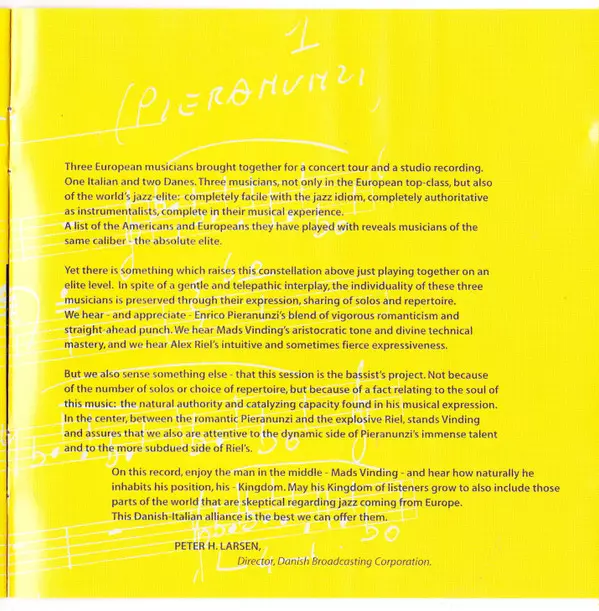 1
(PIERANUNZI)
Three European musicians brought together for a concert tour and a studio recording.
One Italian and two Danes. Three musicians, not only in the European top-class, but also
of the world's jazz-elite: completely facile with the jazz idiom, completely authoritative
as instrumentalists, complete in their musical experience.
A list of the Americans and Europeans they have played with reveals musicians of the
same caliber - the absolute elite.
Yet there is something which raises this constellation above just playing together on an
elite level. In spite of a gentle and telepathic interplay, the individuality of these three
musicians is preserved through their expression, sharing of solos and repertoire.
We hear - and appreciate - Enrico Pieranunzi's blend of vigorous romanticism and
straight-ahead punch. We hear Mads Vinding's aristocratic tone and divine technical
mastery, and we hear Alex Riel's intuitive and sometimes fierce expressiveness.
But we also sense something else - that this session is the bassist's project. Not because
of the number of solos or choice of repertoire, but because of a fact relating to the soul of
this music: the natural authority and catalyzing capacity found in his musical expression.
In the center, between the romantic Pieranunzi and the explosive Riel, stands Vinding
and assures that we also are attentive to the dynamic side of Pieranunzi's immense talent
and to the more subdued side of Riel's.
On this record, enjoy the man in the middle - Mads Vinding - and hear how naturally he
inhabits his position, his - Kingdom. May his Kingdom of listeners grow to also include those
parts of the world that are skeptical regarding jazz coming from Europe.
This Danish-Italian alliance is the best we can offer them.
PETER H. LARSEN,
Director, Danish Broadcasting Corporation.